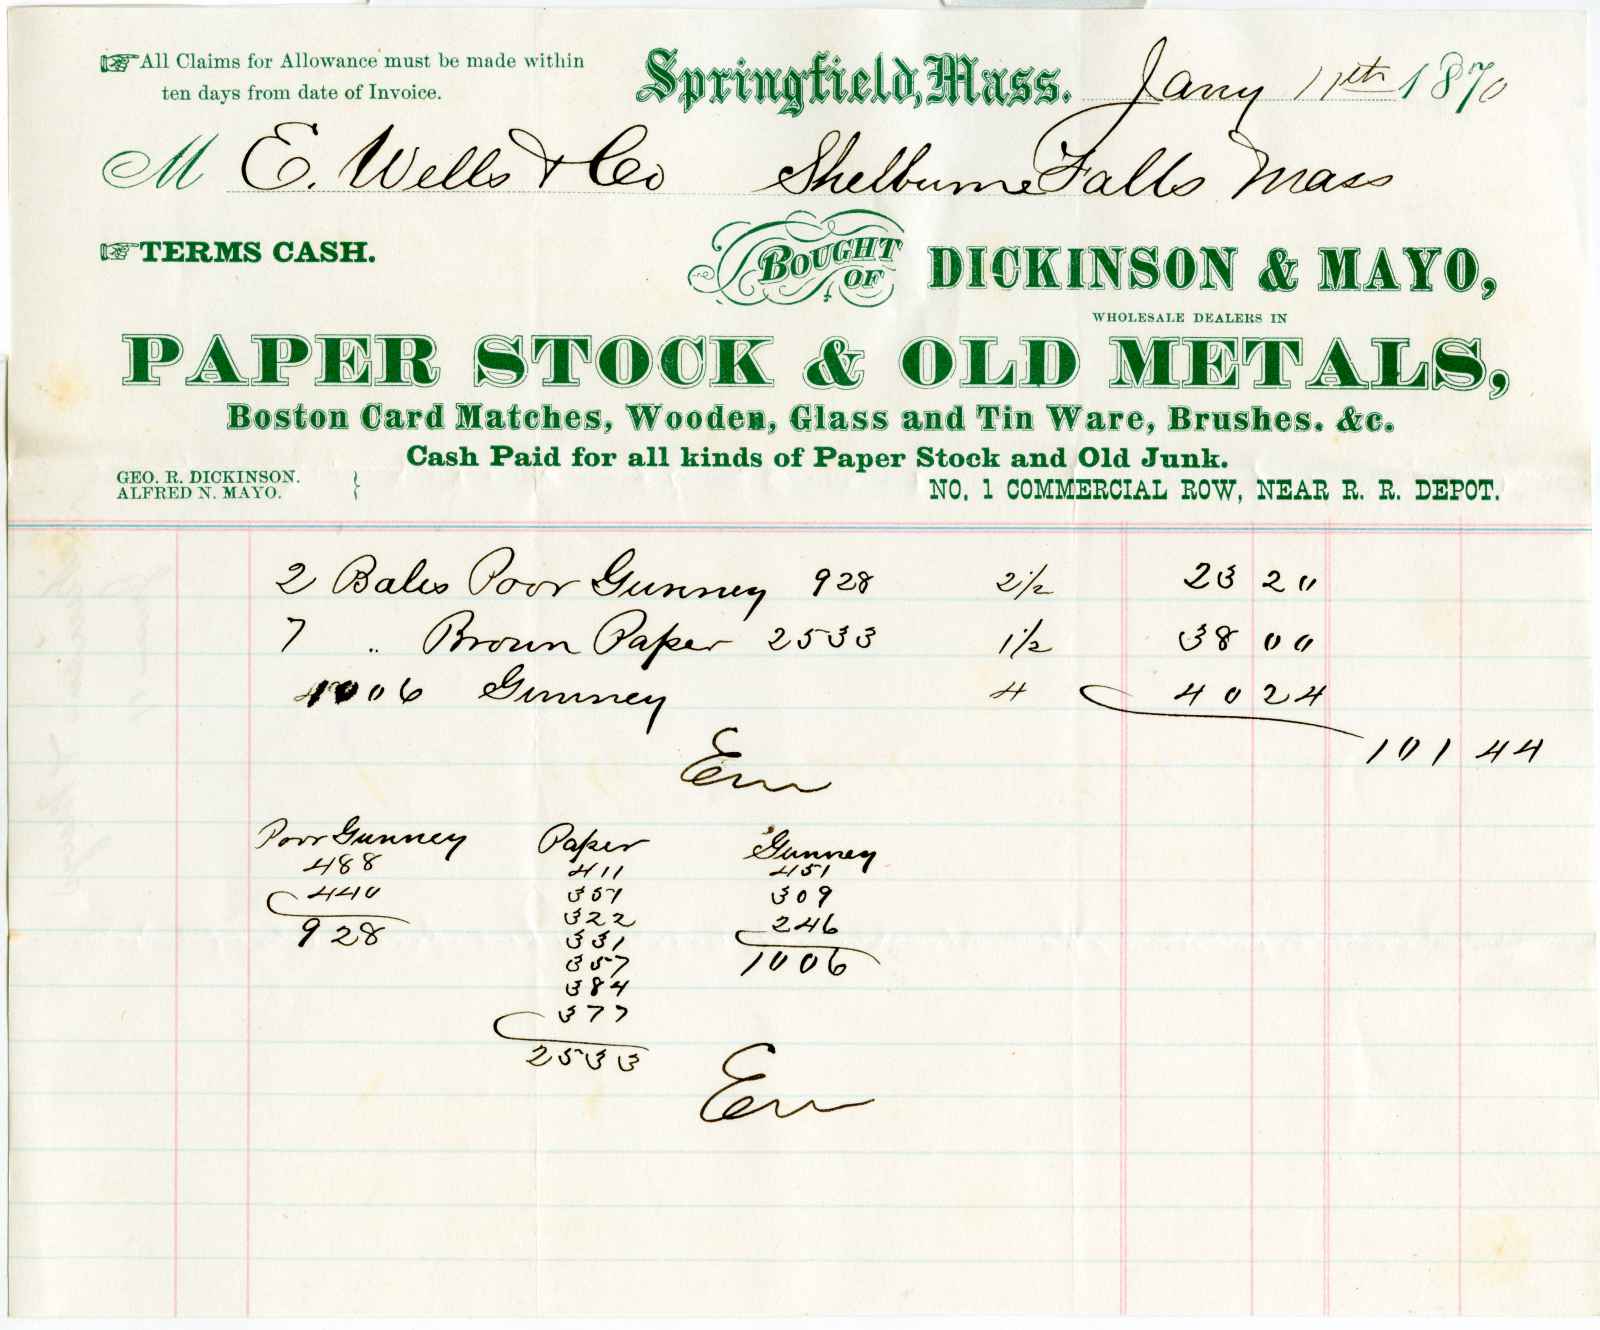 All Claims for Allowance must be made within
ten days from date of Invoice.
Springfield, Mass. Jany 11th 1870
M E. Wells & Co Shelburne Falls Mass
TERMS CASH.
BOUGHT OF DICKINSON & MAYO,
WHOLESALE DEALERS IN
PAPER STOCK & OLD METALS,
Boston Card Matches, Wooden, Glass and Tin Ware, Brushes. &c.
Cash Paid for all kinds of Paper Stock and Old Junk.
GEO. R. DICKINSON.
ALFRED N. MAYO.
NO. 1 COMMERCIAL ROW, NEAR R. R. DEPOT.
2 Bales Poor Gunney 928 2 1/2 23 20
7 " Brown Paper 2533 1 1/2 38 00
1006 Gunney 4 40 24
101 44
Poor Gunney
488
440
928
Paper
411
351
322
331
357
384
377
2533
Gunney
451
309
246
1006